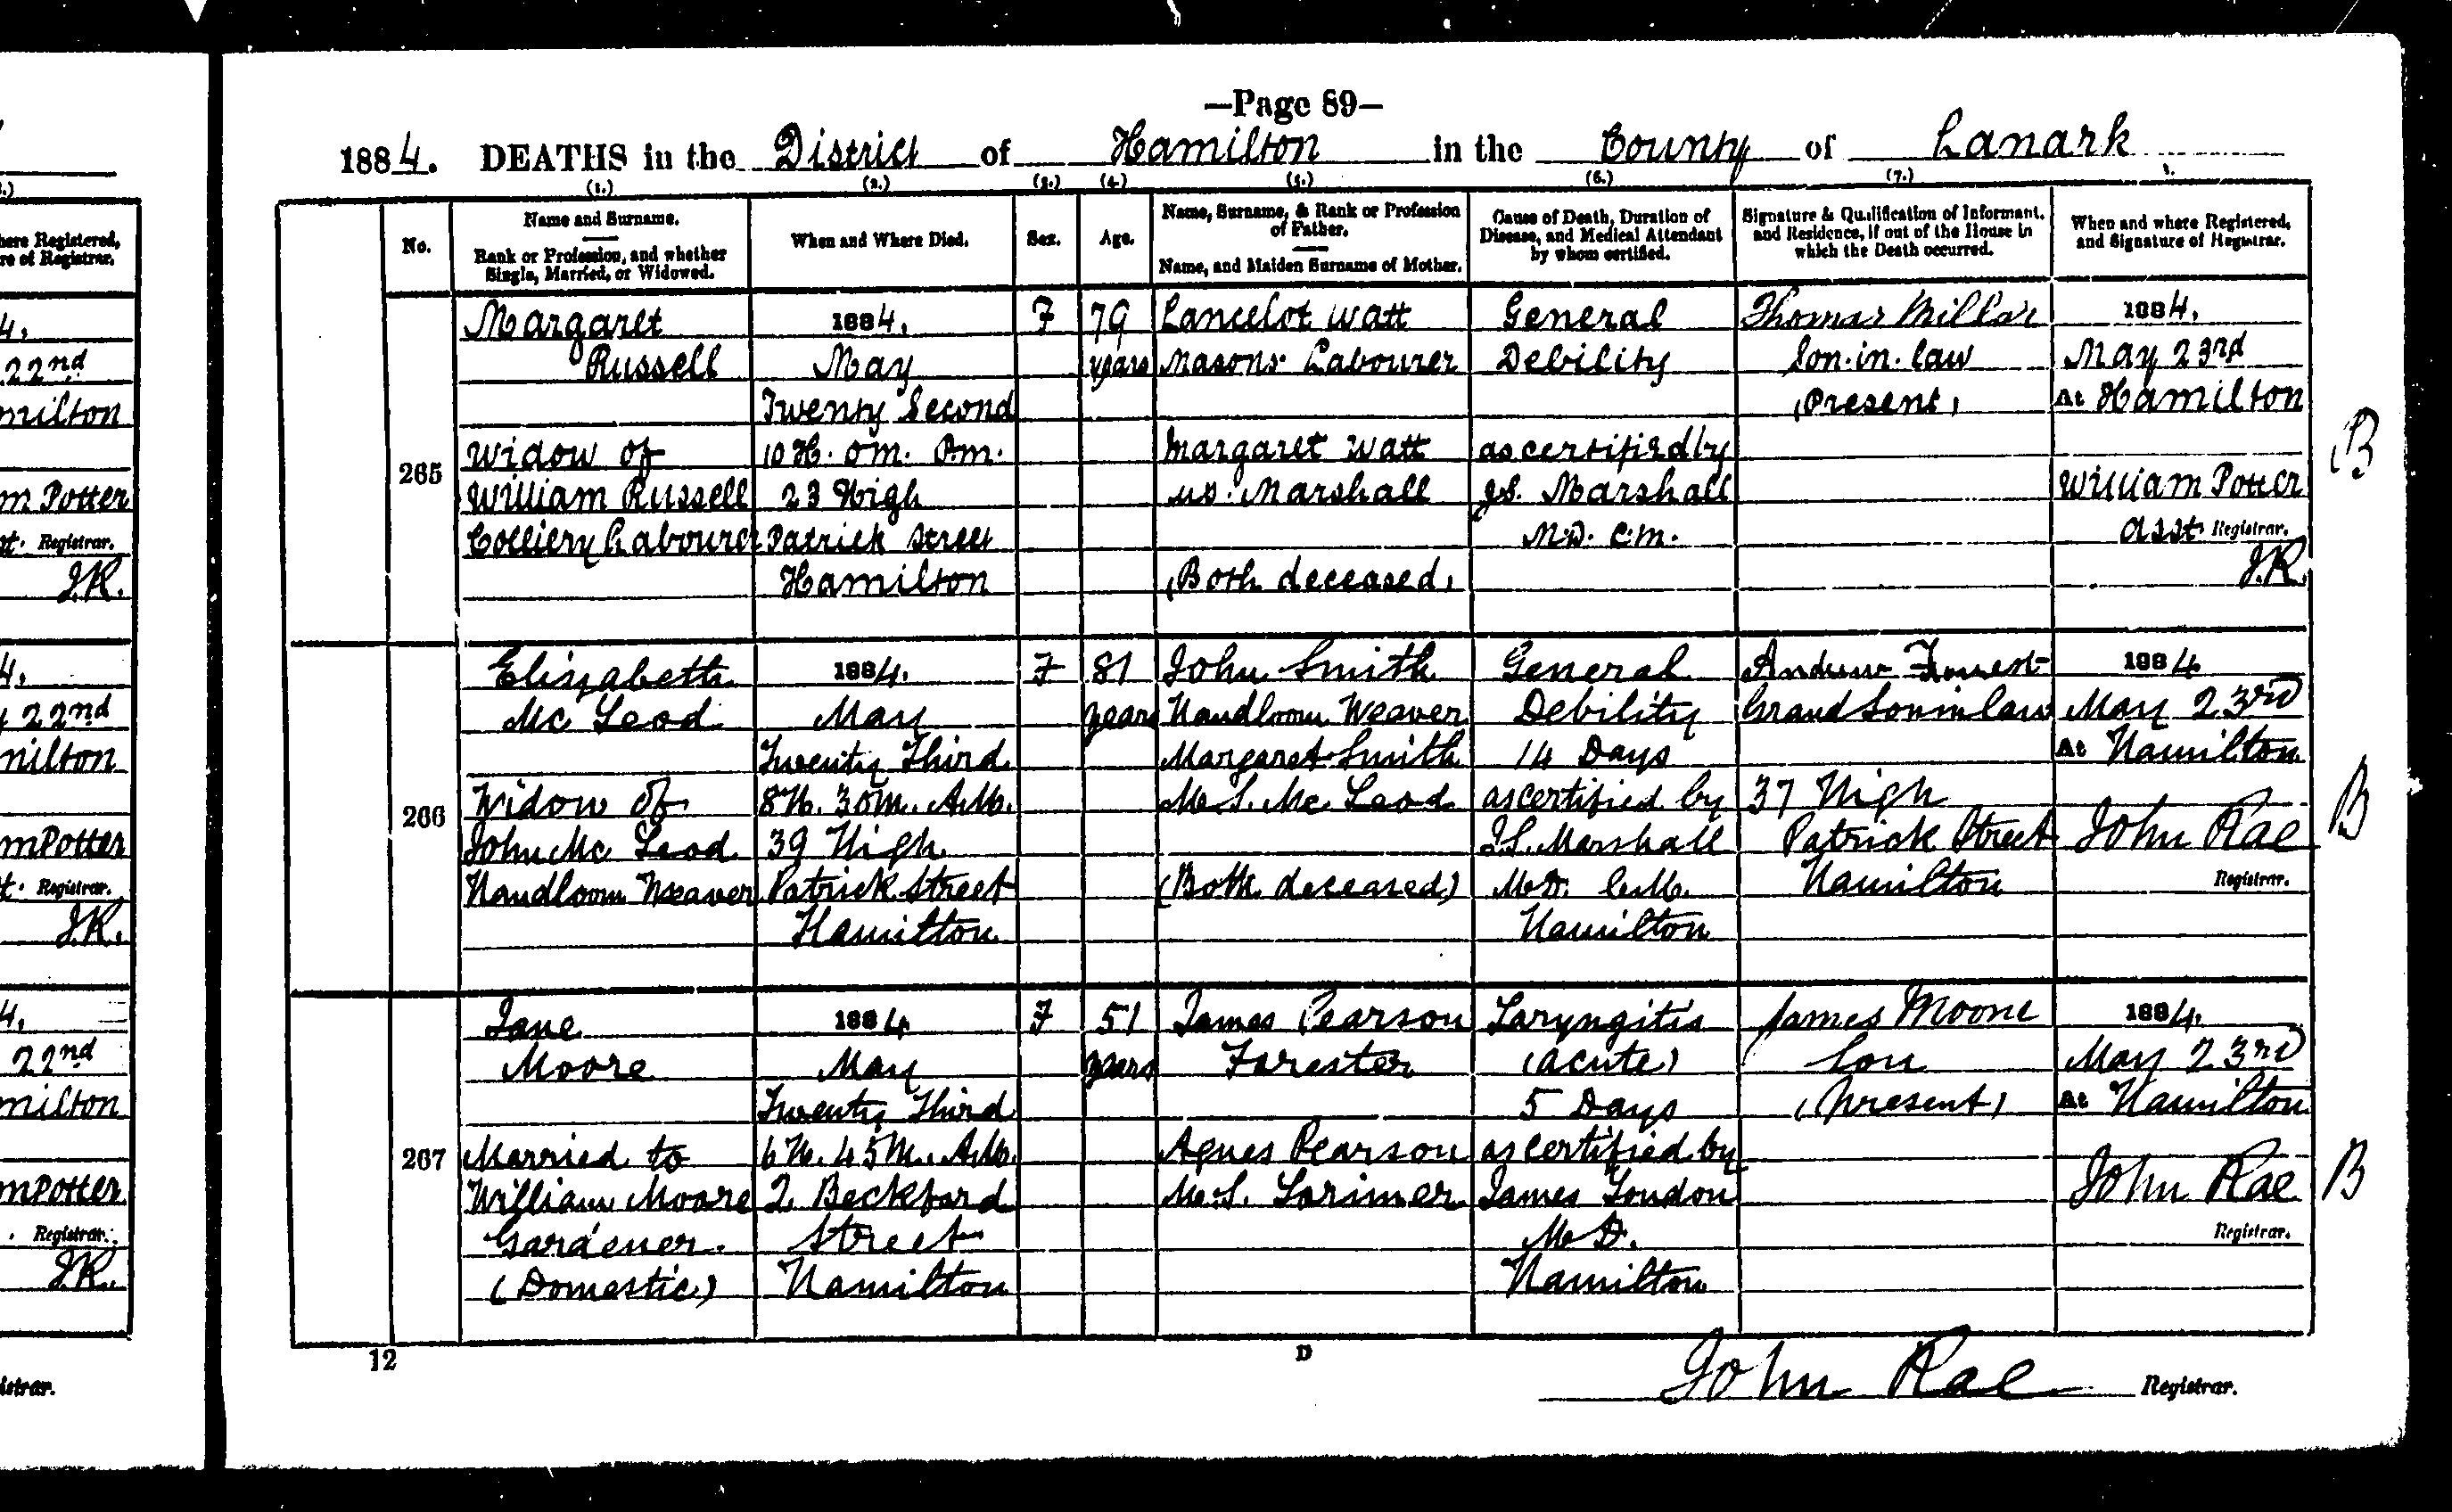 —Page 89—
1884. DEATHS in the District of Hamilton in the County of Lanark
(1.) (2.) (3.) (4.) (5.) (6.) (7.)
No.
Name and Surname.
Rank or Profession, and whether
Single, Married, or Widowed.
When and Where Died.
Sex.
Age.
Name, Surname, & Rank or Profession
of Father.
Name, and Maiden Surname of Mother.
Cause of Death, Duration of
Disease, and Medical Attendant
by whom certified.
Signature & Qualification of Informant,
and Residence, if out of the House in
which the Death occurred.
When and where Registered,
and Signature of Registrar.
265
Margaret
Russell
Widow of
William Russell
Colliery Labourer
1884.
May
Twenty Second
10 H. 0m. P.m.
23 High
Patrick Street
Hamilton
F
79
years
Lancelot Watt
Masons Labourer
Margaret Watt
M.S. Marshall
(Both deceased)
General
Debility
as certified by
J.S. Marshall
M.D. C.M.
Thomas Millar
Son-in-law
(Present)
1884.
May 23rd
At Hamilton
William Potter
Asst. Registrar.
J.R.
B
266
Elizabeth
Mc Leod
Widow of
John Mc Leod
Handloom Weaver
1884.
May
Twenty Third
8H. 30M. A.M.
39 High
Patrick Street
Hamilton
F
81
years
John Smith
Handloom Weaver
Margaret Smith
M.S. Mc Leod
(Both deceased)
General
Debility
14 Days
as certified by
J.S. Marshall
M.D. C.M.
Hamilton
Andrew Forrest
Grand Son in law
37 High
Patrick Street
Hamilton
1884
May 23rd
At Hamilton
John Rae
Registrar.
B
267
Jane
Moore
Married to
William Moore
Gardener.
(Domestic)
1884
May
Twenty Third
6H. 45M. A.M.
2 Beckford
Street
Hamilton
F
51
years
James Pearson
Forester
Agnes Pearson
M.S. Lorimer
Laryngitis
(acute)
5 Days
as certified by
James Loudon
M.D.
Hamilton
James Moore
Son
(Present)
1884.
May 23rd
At Hamilton
John Rae
Registrar.
B
12
D
John Rae Registrar.
here Registered,
re of Registrar.
4.
22nd
milton
m Potter
t. Registrar.
J.R.
4.
y 22nd
milton
mPotter
t. Registrar.
J.R.
4.
22nd
milton
mPotter
. Registrar.
J.R.
istrar.